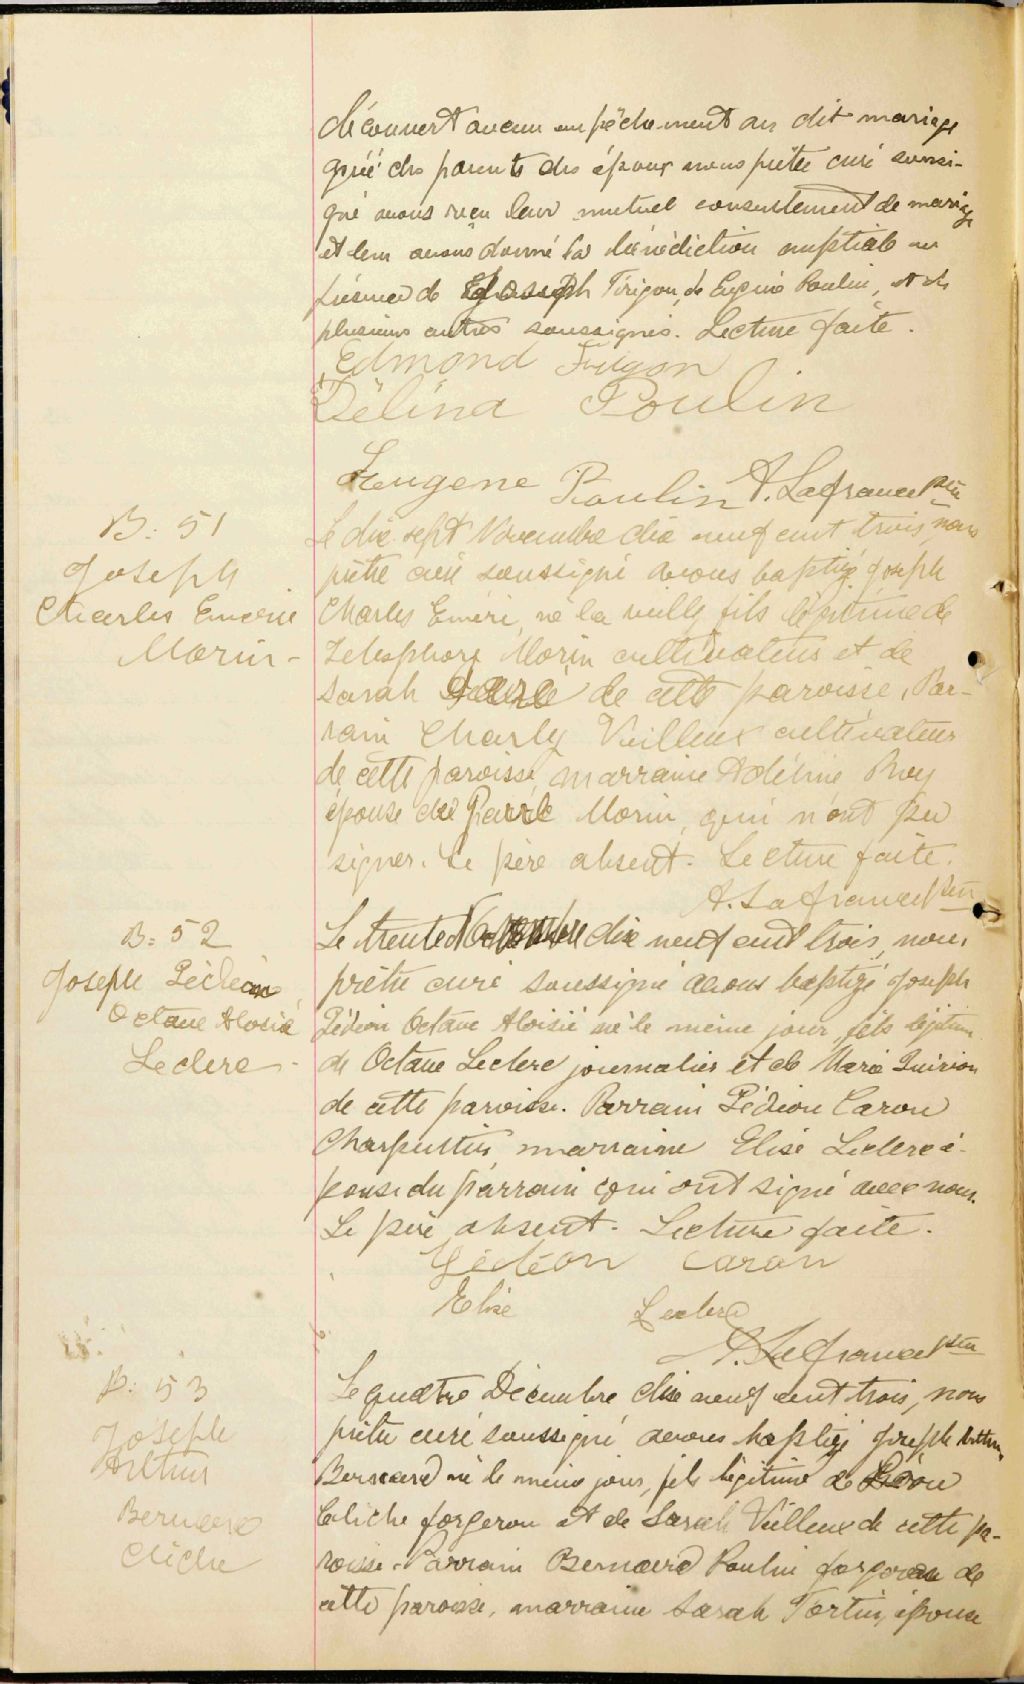 découvert aucun empêchement au dit mariage
gréé des parents des époux nous prêtre curé soussi-
gné avons reçu leur mutuel consentement de mariage
et leur avons donné la bénédiction nuptiale en
présence de Joseph de Eugène Poulin, et de
plusieurs autres soussignés. Lecture faite.
Edmond
Délina Poulin
Eugene Poulin A. Lafrance ptre
B. 51
Joseph
Charles Emérie
Morin -
Le dix sept Novembre dix neuf cent trois, nous
prêtre curé soussigné avons baptisé Joseph
Charles Eméri, né la veille, fils légitime de
Telesphore Morin cultivateur et de
Sarah de cette paroisse. Par-
rain Charly Veilleux cultivateur
de cette paroisse, marraine Adéline Roy
épouse de Morin, qui n'ont pu
signer. Le père absent. Lecture faite.
A. Lafrance ptre
B: 52
Joseph Gédéon
Octave Aloisié
Leclerc -
Le trente Novembre dix neuf cent trois, nous
prêtre curé soussigné avons baptisé Joseph
Gédéon Octave Aloisié né le même jour, fils légitime
de Octave Leclerc journalier et de Marie Quirion
de cette paroisse. Parrain Gédéon Caron
Charpentier, marraine Elise Leclerc é-
pouse du parrain qui ont signé avec nous.
Le père absent. Lecture faite.
Gédéon Caron
Elise Leclerc
A. Lafrance ptre
B: 53
Joseph
Arthur
Bernard
Cliche
Le quatre Décembre dix neuf cent trois, nous
prêtre curé soussigné avons baptisé Joseph Arthur
Bernard né le même jour, fils légitime de
Cliche forgeron et de Sarah Veilleux de cette pa-
roisse. Parrain Bernard Poulin forgeron de
cette paroisse, marraine Sarah Fortin, épouse